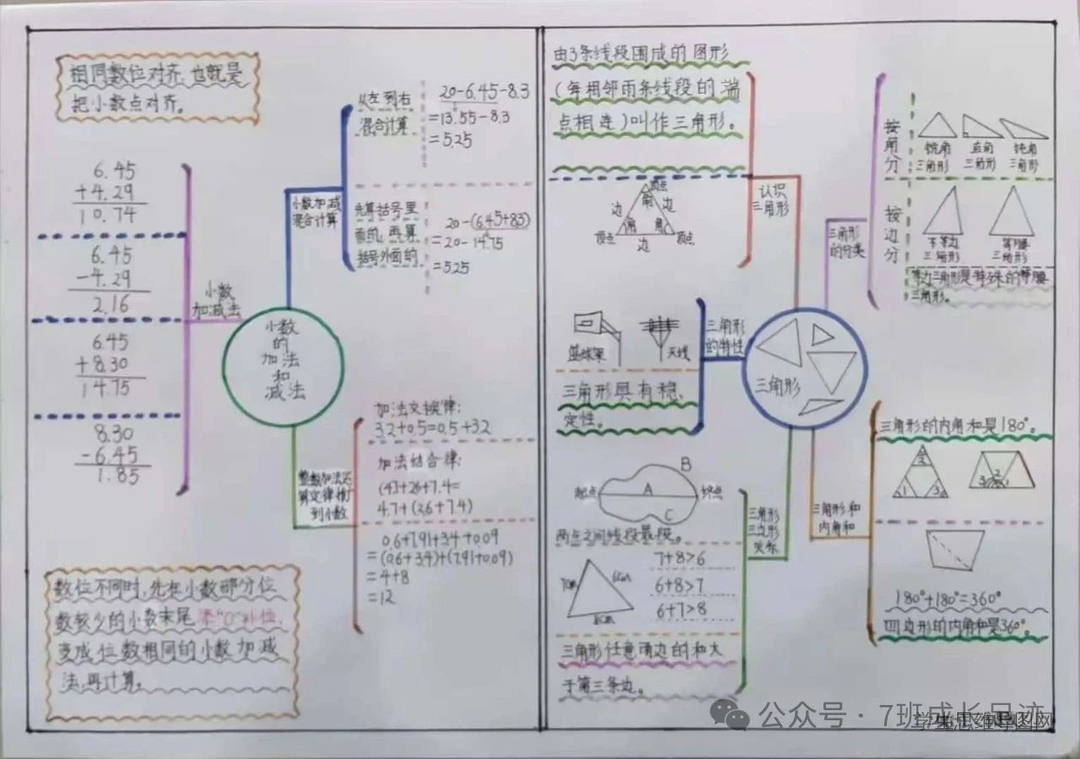 相同数位对齐,也就是
把小数点对齐。
6.45
+4.29
10.74
6.45
-4.29
2.16
6.45
+8.30
14.75
8.30
-6.45
1.85
小数
加减法
小数加减
混合计算
从左到右
混合计算
20-6.45-8.3
=13.55-8.3
=5.25
先算括号里
面的,再算
括号外面的
20-(6.45+8.3)
=20-14.75
=5.25
小数
的
加法
和
减法
整数加法运
算定律推广
到小数
加法交换律:
3.2+0.5=0.5+3.2
加法结合律:
(4.7+2.6+7.4=
4.7+(2.6+7.4)
0.6+7.91+3.4+0.09
=(0.6+3.4)+(7.91+0.09)
=4+8
=12
数位不同时,先在小数部分位
数较少的小数末尾添"0"补位,
变成位数相同的小数加减
法,再计算。
由3条线段围成的图形
(每相邻雨条线段的端
点相连)叫作三角形。
顶点
角
边 边
角 角
顶点 边 顶点
认识
三角形
三角形
的分类
按角分
锐角
三角形
直角
三角形
钝角
三角形
按边分
不等边
三角形
等腰
三角形
等边三角形是特殊的等腰
三角形。
三角形
的特性
篮球架
天线
三角形具有稳
定性。
三角形
三角形
三边形
关系
B
起点 A 终点
C
两点之间线段最段。
7cm 6cm
8cm
7+8>6
6+8>7
6+7>8
三角形任意两边的和大
于第三条边。
三角形和
内角和
三角形的内角和是180°。
2
1 3
2
3 1
180°+180°=360°
四边形的内角和是360°。
公众号·7班成长足迹
学生思维导图网